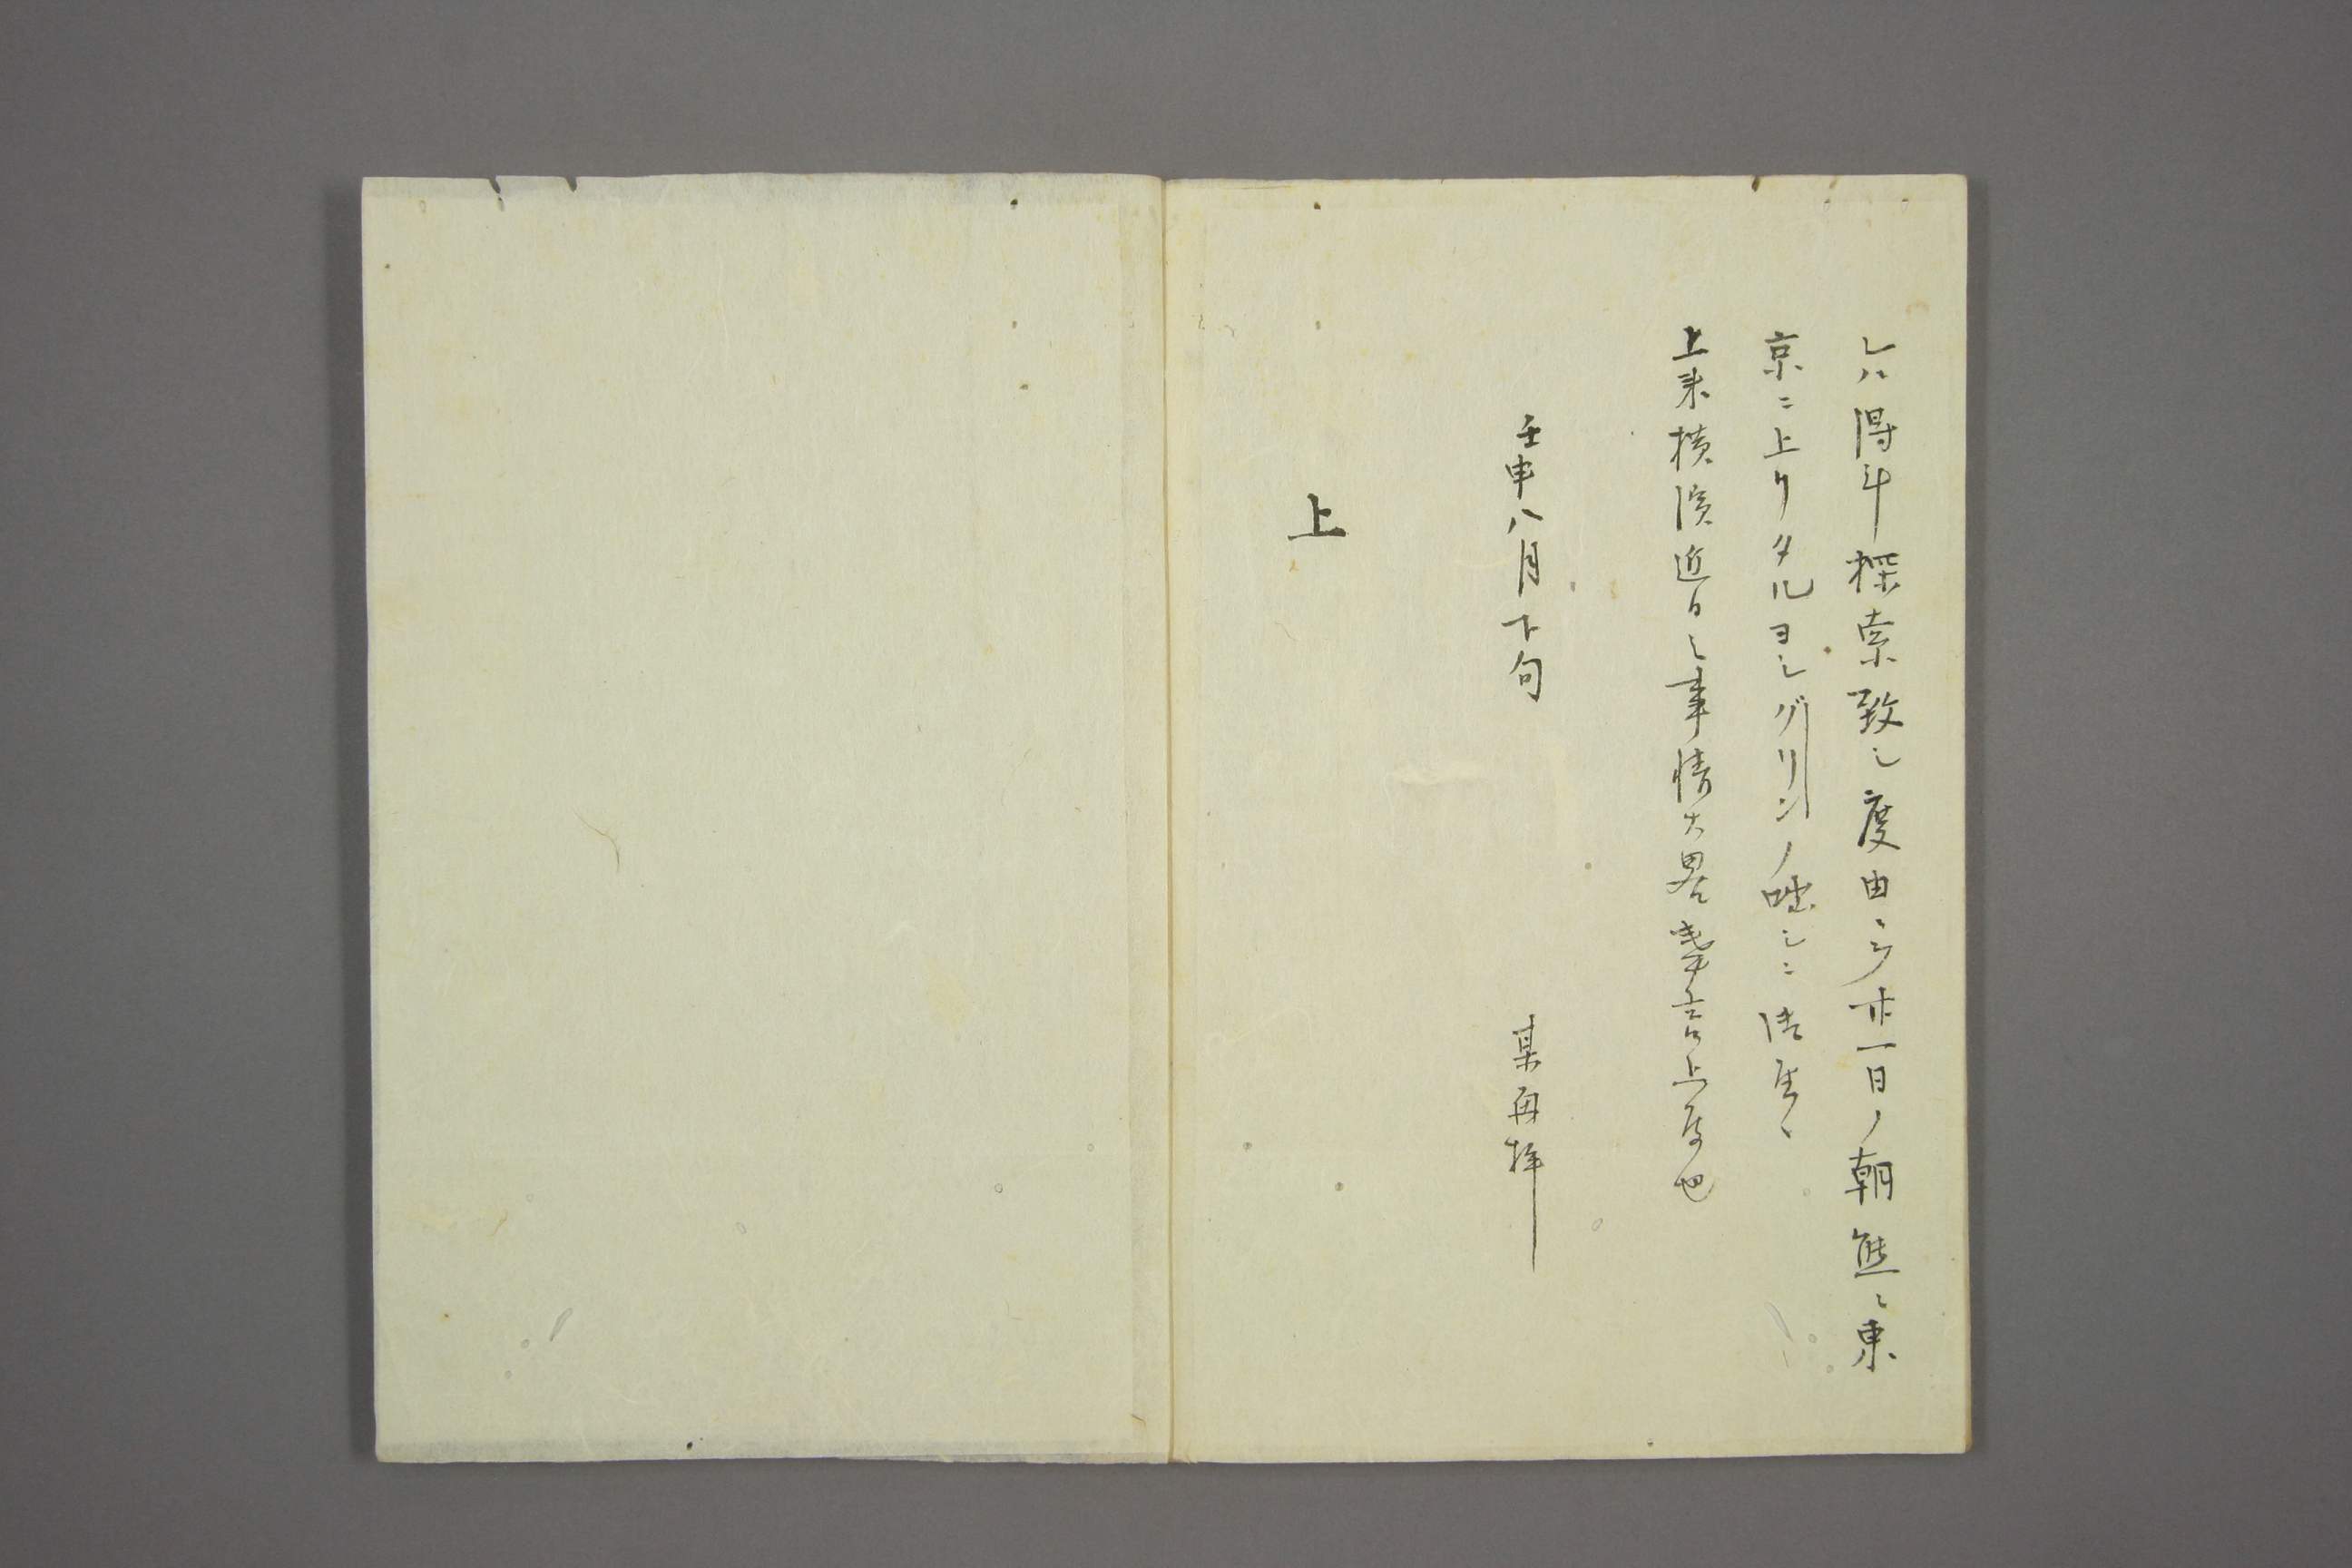 レハ得斗探索致シ度由ニテ廿一日ノ朝態々東
京ニ上リタルヨシグリンノ咄シニ御座候
上来横濱近日之事情大畧奉言上度也
壬申八月下旬
某再拝
上